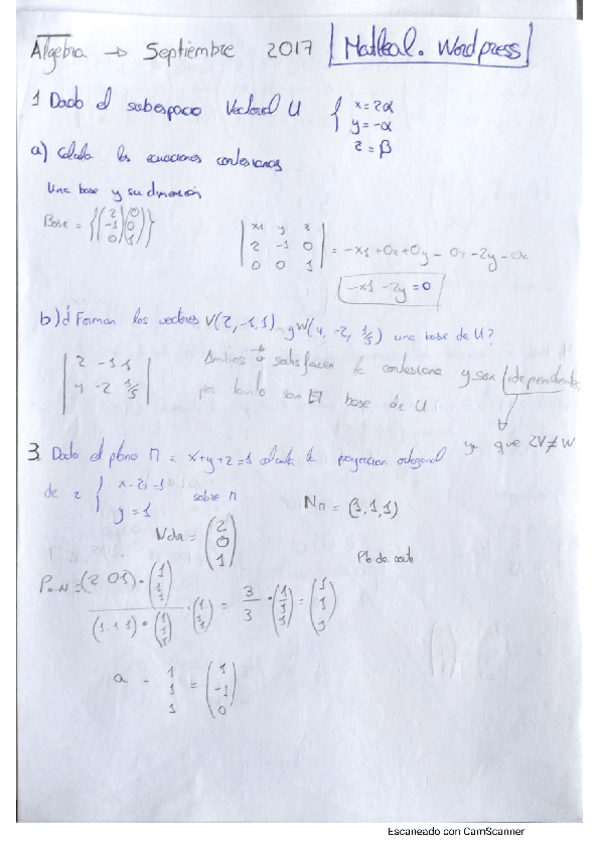 Algebra → Septiembre 2017 | Matleal. Wordpress |
1 Dado el subespacio Vectorial U { x = 2α
y = -α
z = β
a) Calcula las ecuaciones cartesianas
Una base y su dimensión
Base = {(2 -1 0)(0 0 1)}
| x1 y z |
| 2 -1 0 | = -x1 + 0z + 0y - 0z - 2y - 0x
| 0 0 1 |
-x1 - 2y = 0
b) ¿Forman los vectores V(2, -1, 1) y W(4, -2, 1/5) una base de U?
| 2 -1 1 |
| 4 -2 1/5 |
Ambos satisfacen la cartesiana y son independiente
por tanto son base de U
ya que 2V ≠ W
3. Dado el plano π = x+y+z=1 calcula la proyeccion ortogonal
de r { x - 2z = -1
y = 1
sobre π
Nπ = (1, 1, 1)
Vdir = (2 0 1)
Pto de corte
= (2 0 1) · (1 1 1)
(1 1 1) · (1 1 1) · (1 1 1) = 3/3 · (1 1 1) = (1 1 1)
a - 1 1 1 = (1 -1 0)
Escaneado con CamScanner